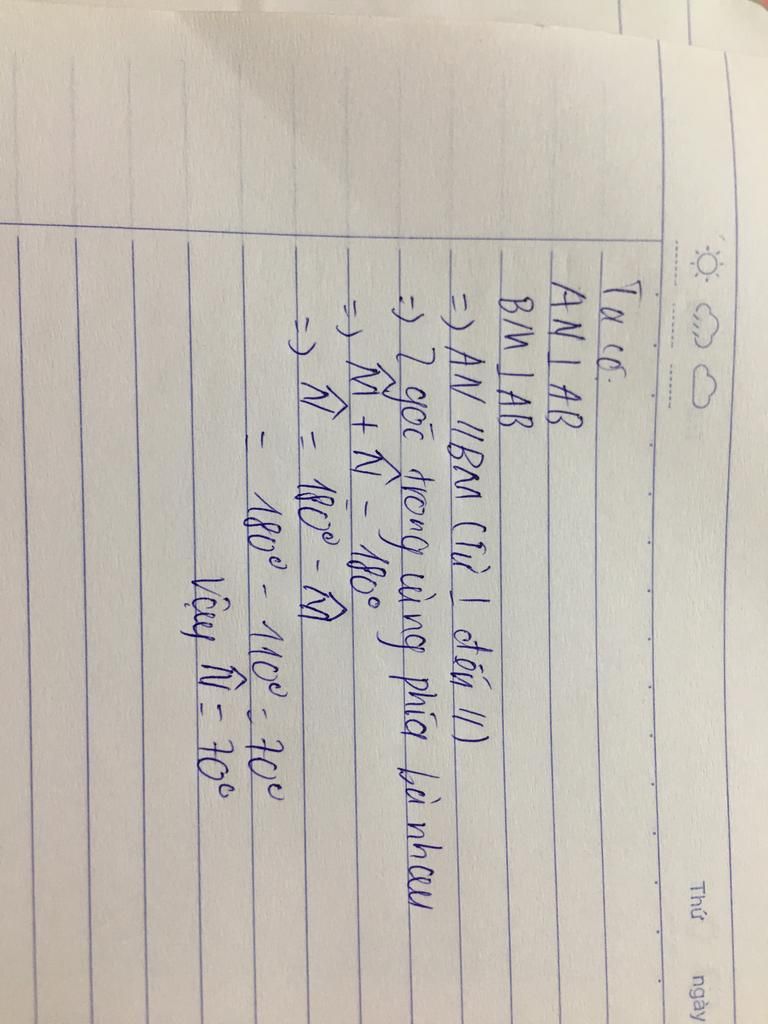 Thứ ngày
Ta có.
AN ⊥ AB
BM ⊥ AB
=) AN // BM (từ ⊥ đến //)
=) 2 góc trong cùng phía bù nhau
=) M̂ + N̂ = 180°
=) N̂ = 180° - M̂
= 180° - 110° = 70°
Vậy N̂ = 70°